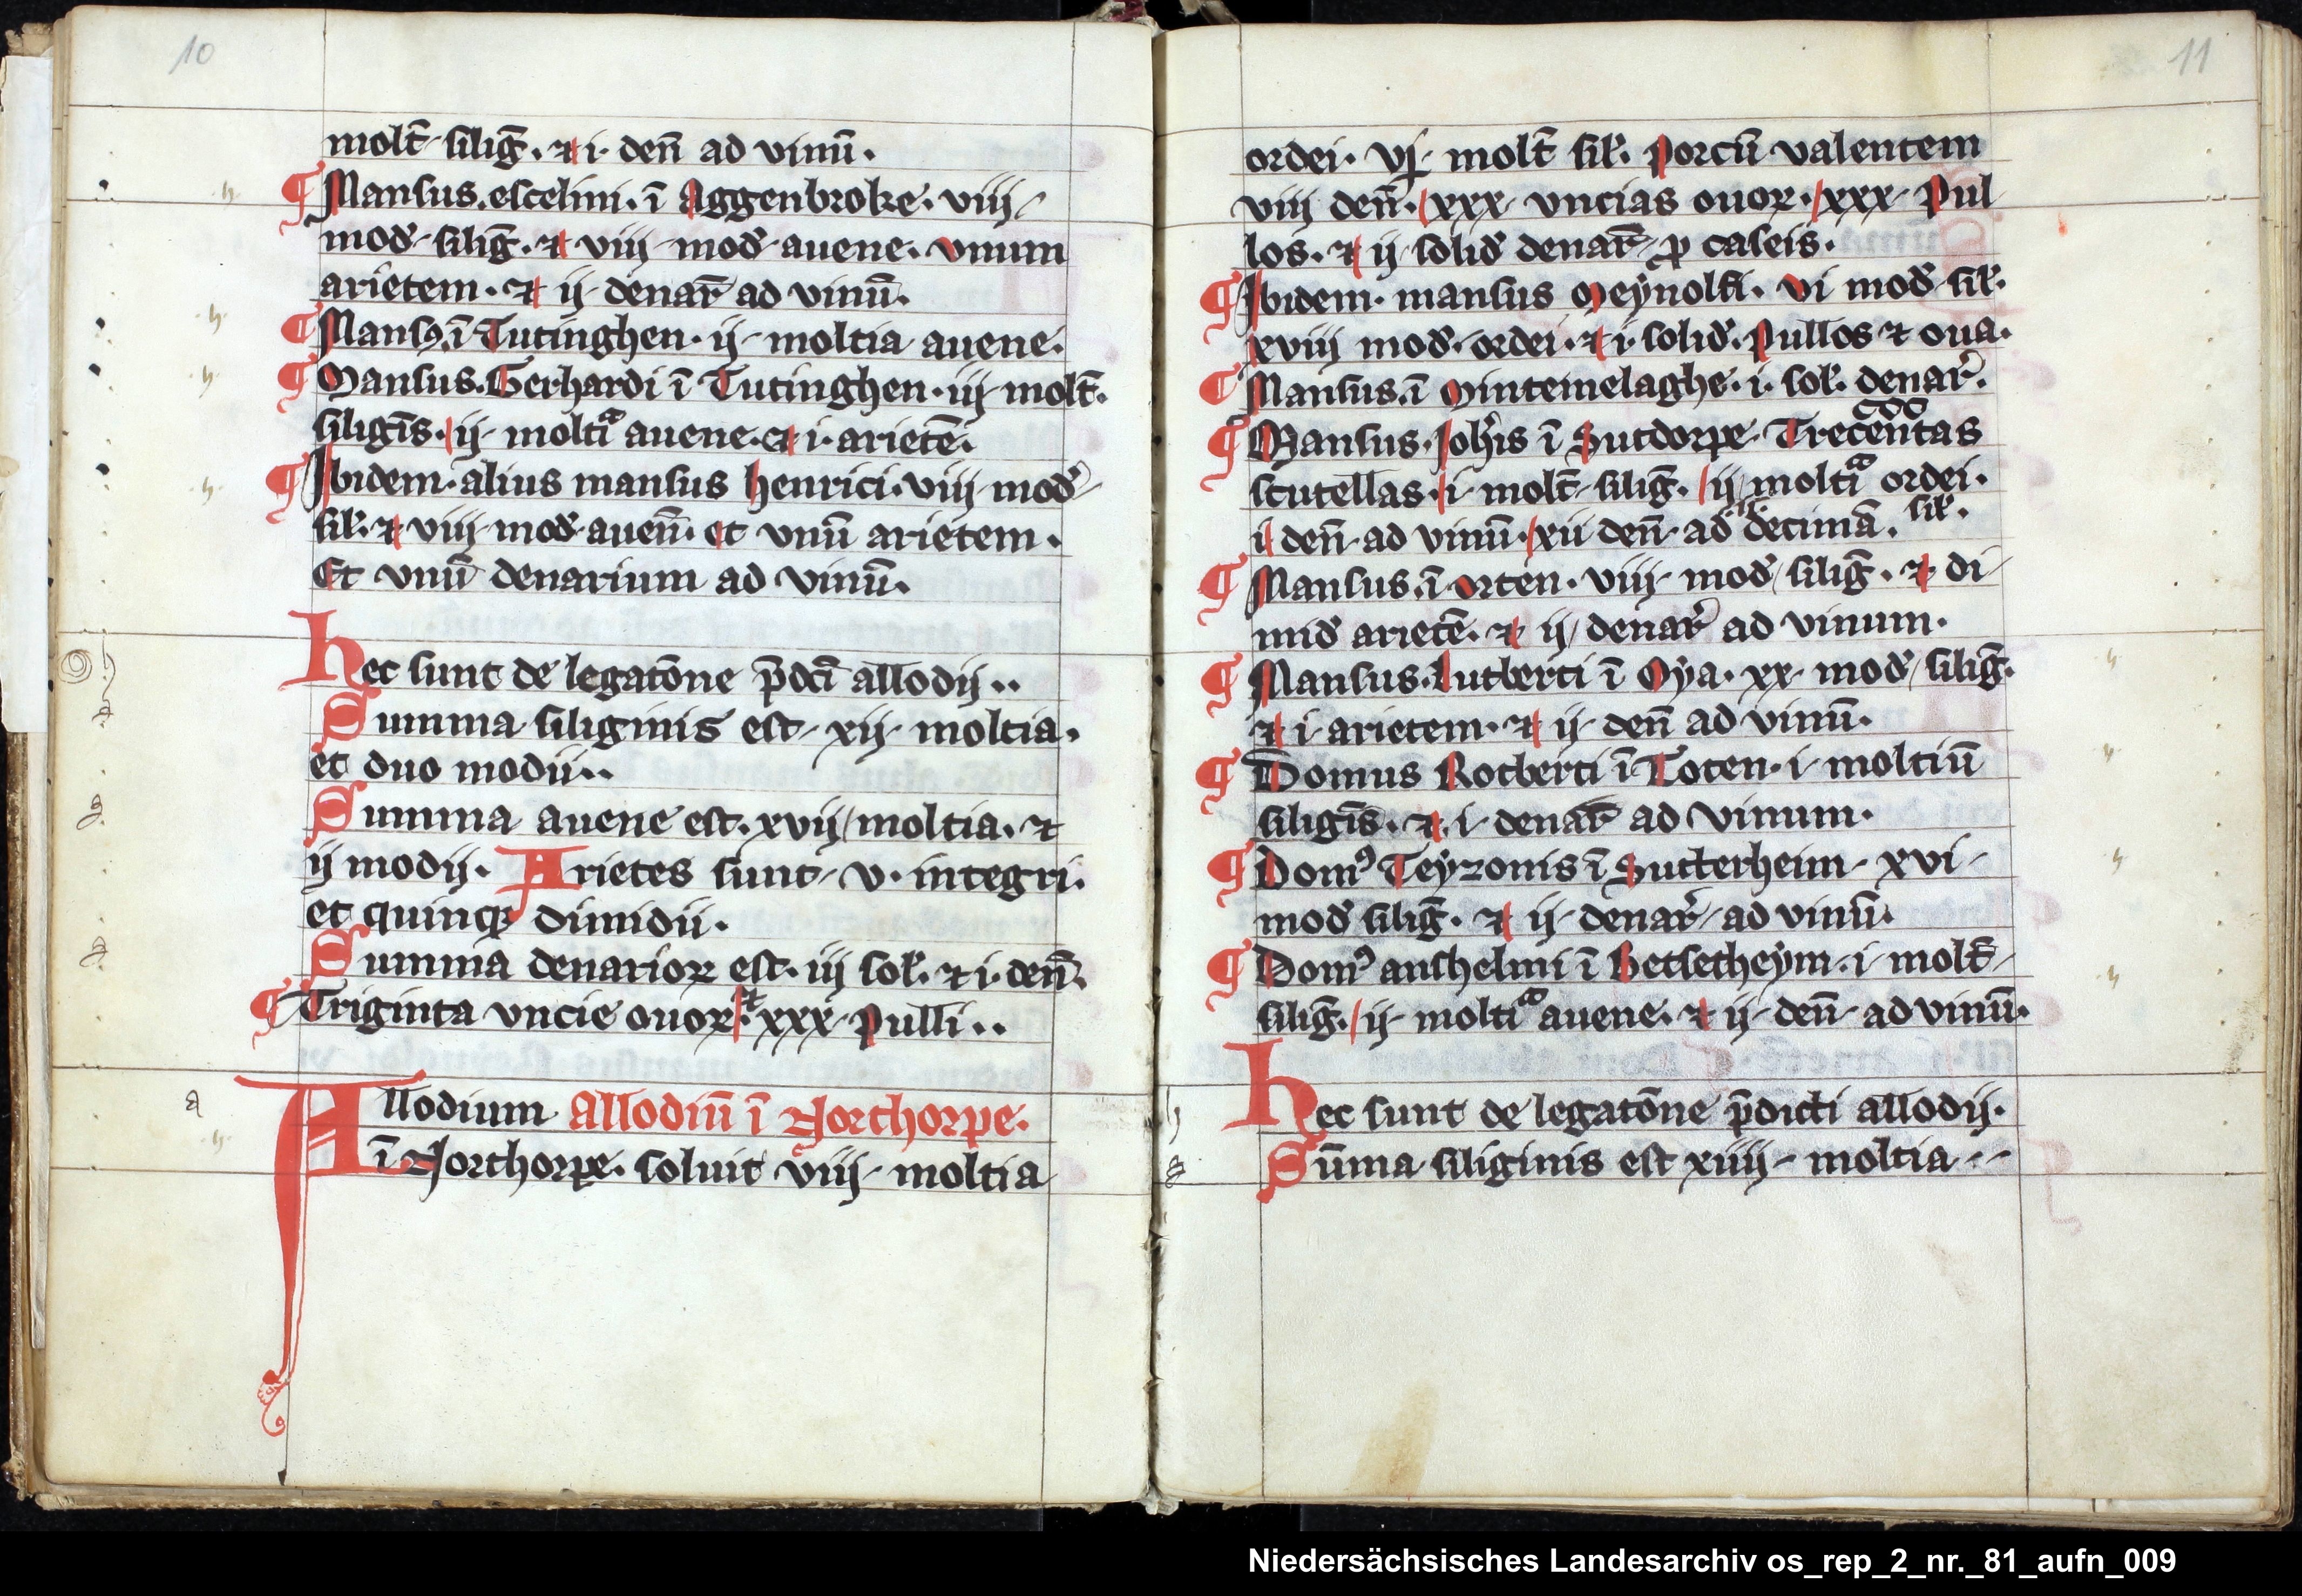 10
molt̄ siliḡ. ⁊ i. den̄ ad vinū.
¶ Mansus. escelini. ī Aggenbroke. viij
mod̓ siliḡ. ⁊ viij mod̓ auene. vnum
arietem. ⁊ ij denar̄ ad vinū.
¶ Mansꝯ. ī Tutinghen. ij moltia auene.
¶ Mansus. Gerhardi ī Tutinghen. iij molt̄.
siligīs. ij moltiᵃ auene. et i. arietē.
¶ Ibidem. alius mansus henrici. viij mod̓
sil̓. ⁊ viij mod̓ auen̄. et vnū arietem.
Et vnū denarium ad vinū.
Hec sunt de legatōne p̄dc̄i allodij..
Summa siliginis est xij moltia.
et duo modii..
Summa auene est. xvij moltia. ⁊
ij modij. Arietes sunt v. integri.
et quinqꝫ dimidii.
Summa denarioꝝ est. iij sol̓. ⁊ i. den̄.
¶ Triginta vncie ouoꝝ. ⁊ xxx pulli..
Allodium Allodiū ī Northorpe.
ī Northorpe. soluit viij moltia
11
ordei. vj. molt̄ sil̓. porcū valentem
viij den̄. xxx vncias ouoꝝ. xxx pul
los. ⁊ ij solid̓ denar̄ ꝓ caseis.
¶ Ibidem. mansus Meẏnolfi. vi mod̓ sil̓.
xviij mod̓. ordei. ⁊ i. solid̓. pullos ⁊ oua.
¶ Mansus. ī Mintemelaghe. i. sol̓. denar̓.
ccc
¶ Mansus. Joh̓is ī Sutdorpe. Trecentas
scutellas. i. molt̄ siliḡ. ij moltiᵃ ordei.
ij den̄ ad vinū. xii den̄ ad decimā. sil̓.
¶ Mansus. ī Vrten. viij mod̓ siliḡ. ⁊ di
mid̓ arietē. ⁊ ij denar̓ ad vinum.
¶ Mansus. Lutberti ī Oẏa. xx mod̓ siliḡ.
⁊ i. arietem. ⁊ ij den̄ ad vinū.
¶ Domus Rotberti ī Toten. i. moltiū
siligīs. ⁊ i. denar̄ ad vinum.
¶ Domꝰ Teẏzonis ī Sutterheim xvi
mod̓ siliḡ. ⁊ ij denar̓ ad vinū.
¶ Domꝰ anshelmi ī Betsetheẏm. i. molt̄
siliḡ. ij moltiᵃ auene. ⁊ ij den̄ ad vinū.
Hec sunt de legatōne p̄dicti allodij.
Sūma siliginis est xiiij moltia
Niedersächsisches Landesarchiv os_rep_2_nr._81_aufn_009